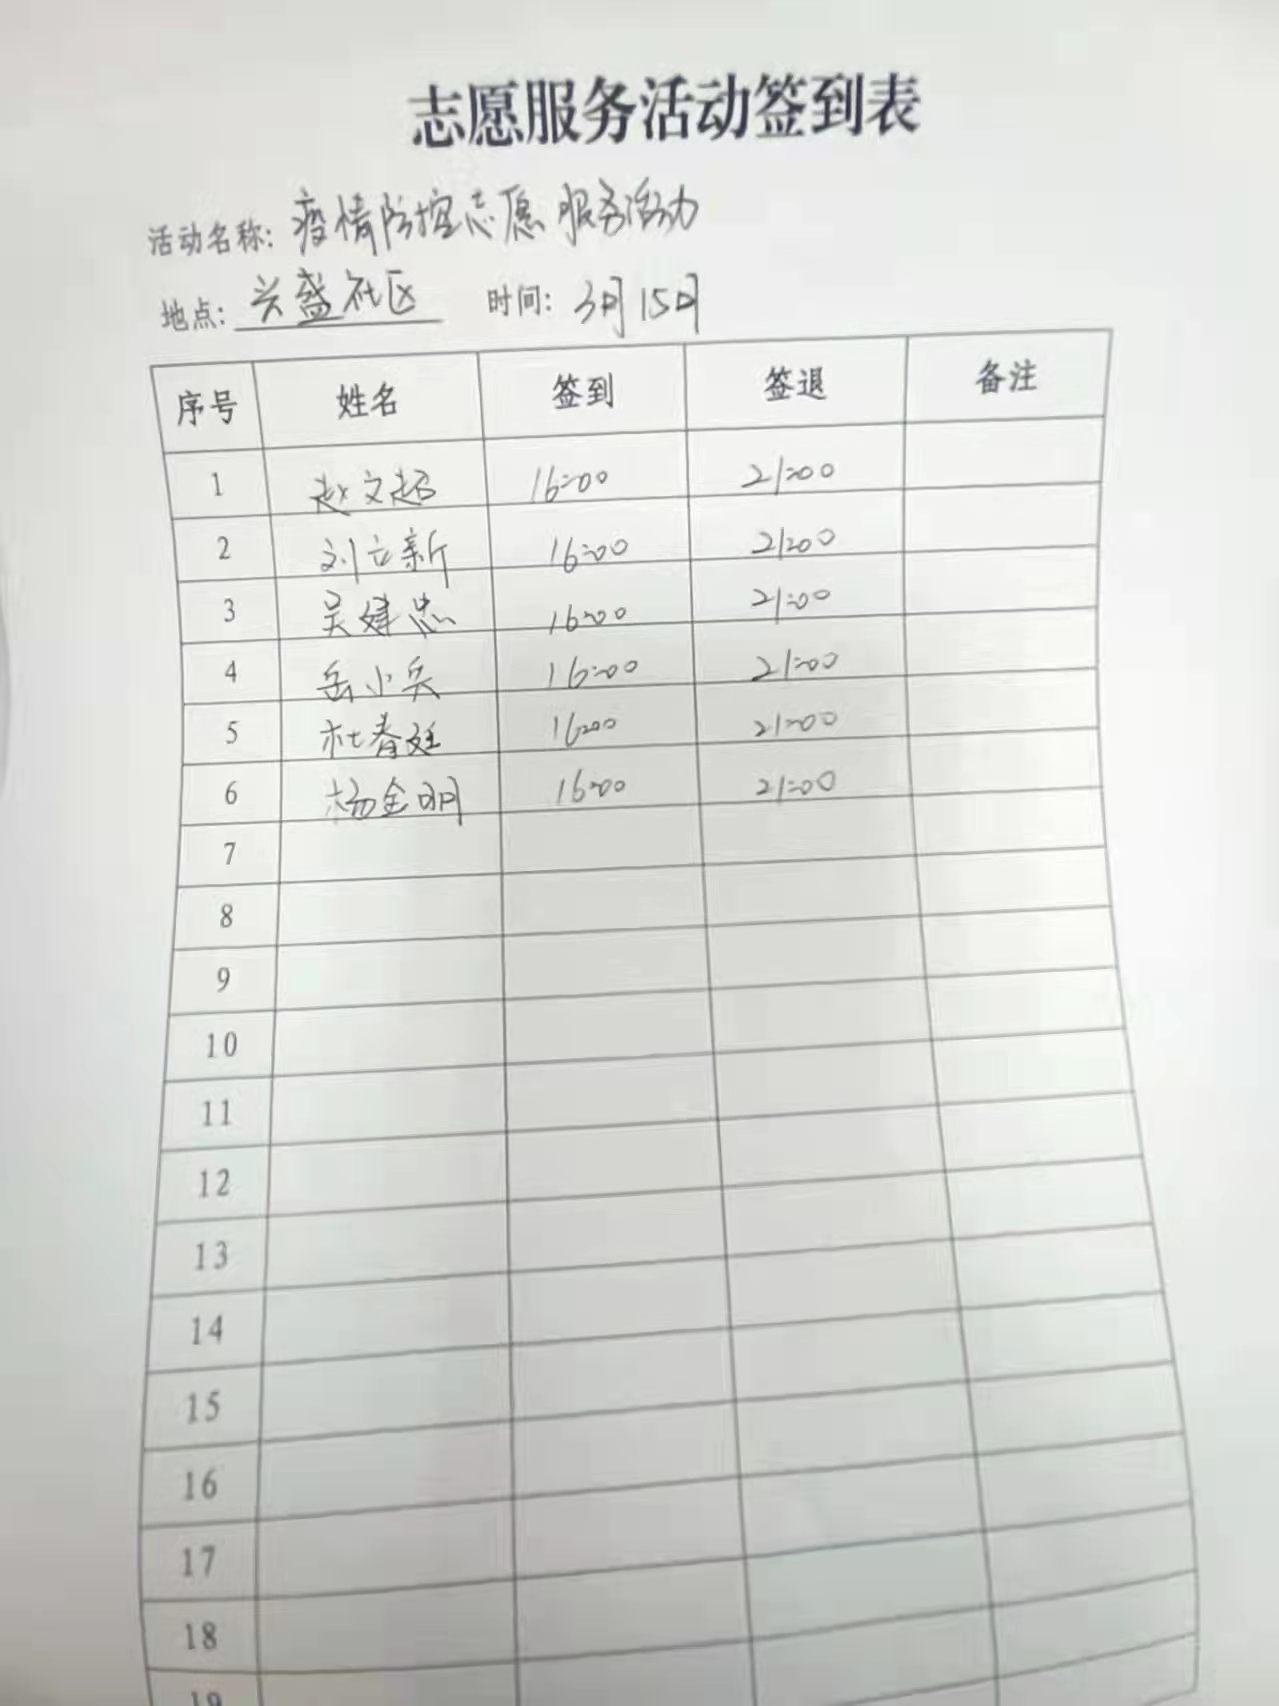 志愿服务活动签到表
活动名称: 疫情防控志愿服务活动
地点: 兴盛社区 时间: 3月15日
序号 姓名 签到 签退 备注
1 赵文超 16:00 21:00
2 刘立新 16:00 21:00
3 吴建忠 16:00 21:00
4 岳小兵 16:00 21:00
5 杜春廷 16:00 21:00
6 杨金明 16:00 21:00
7
8
9
10
11
12
13
14
15
16
17
18
19